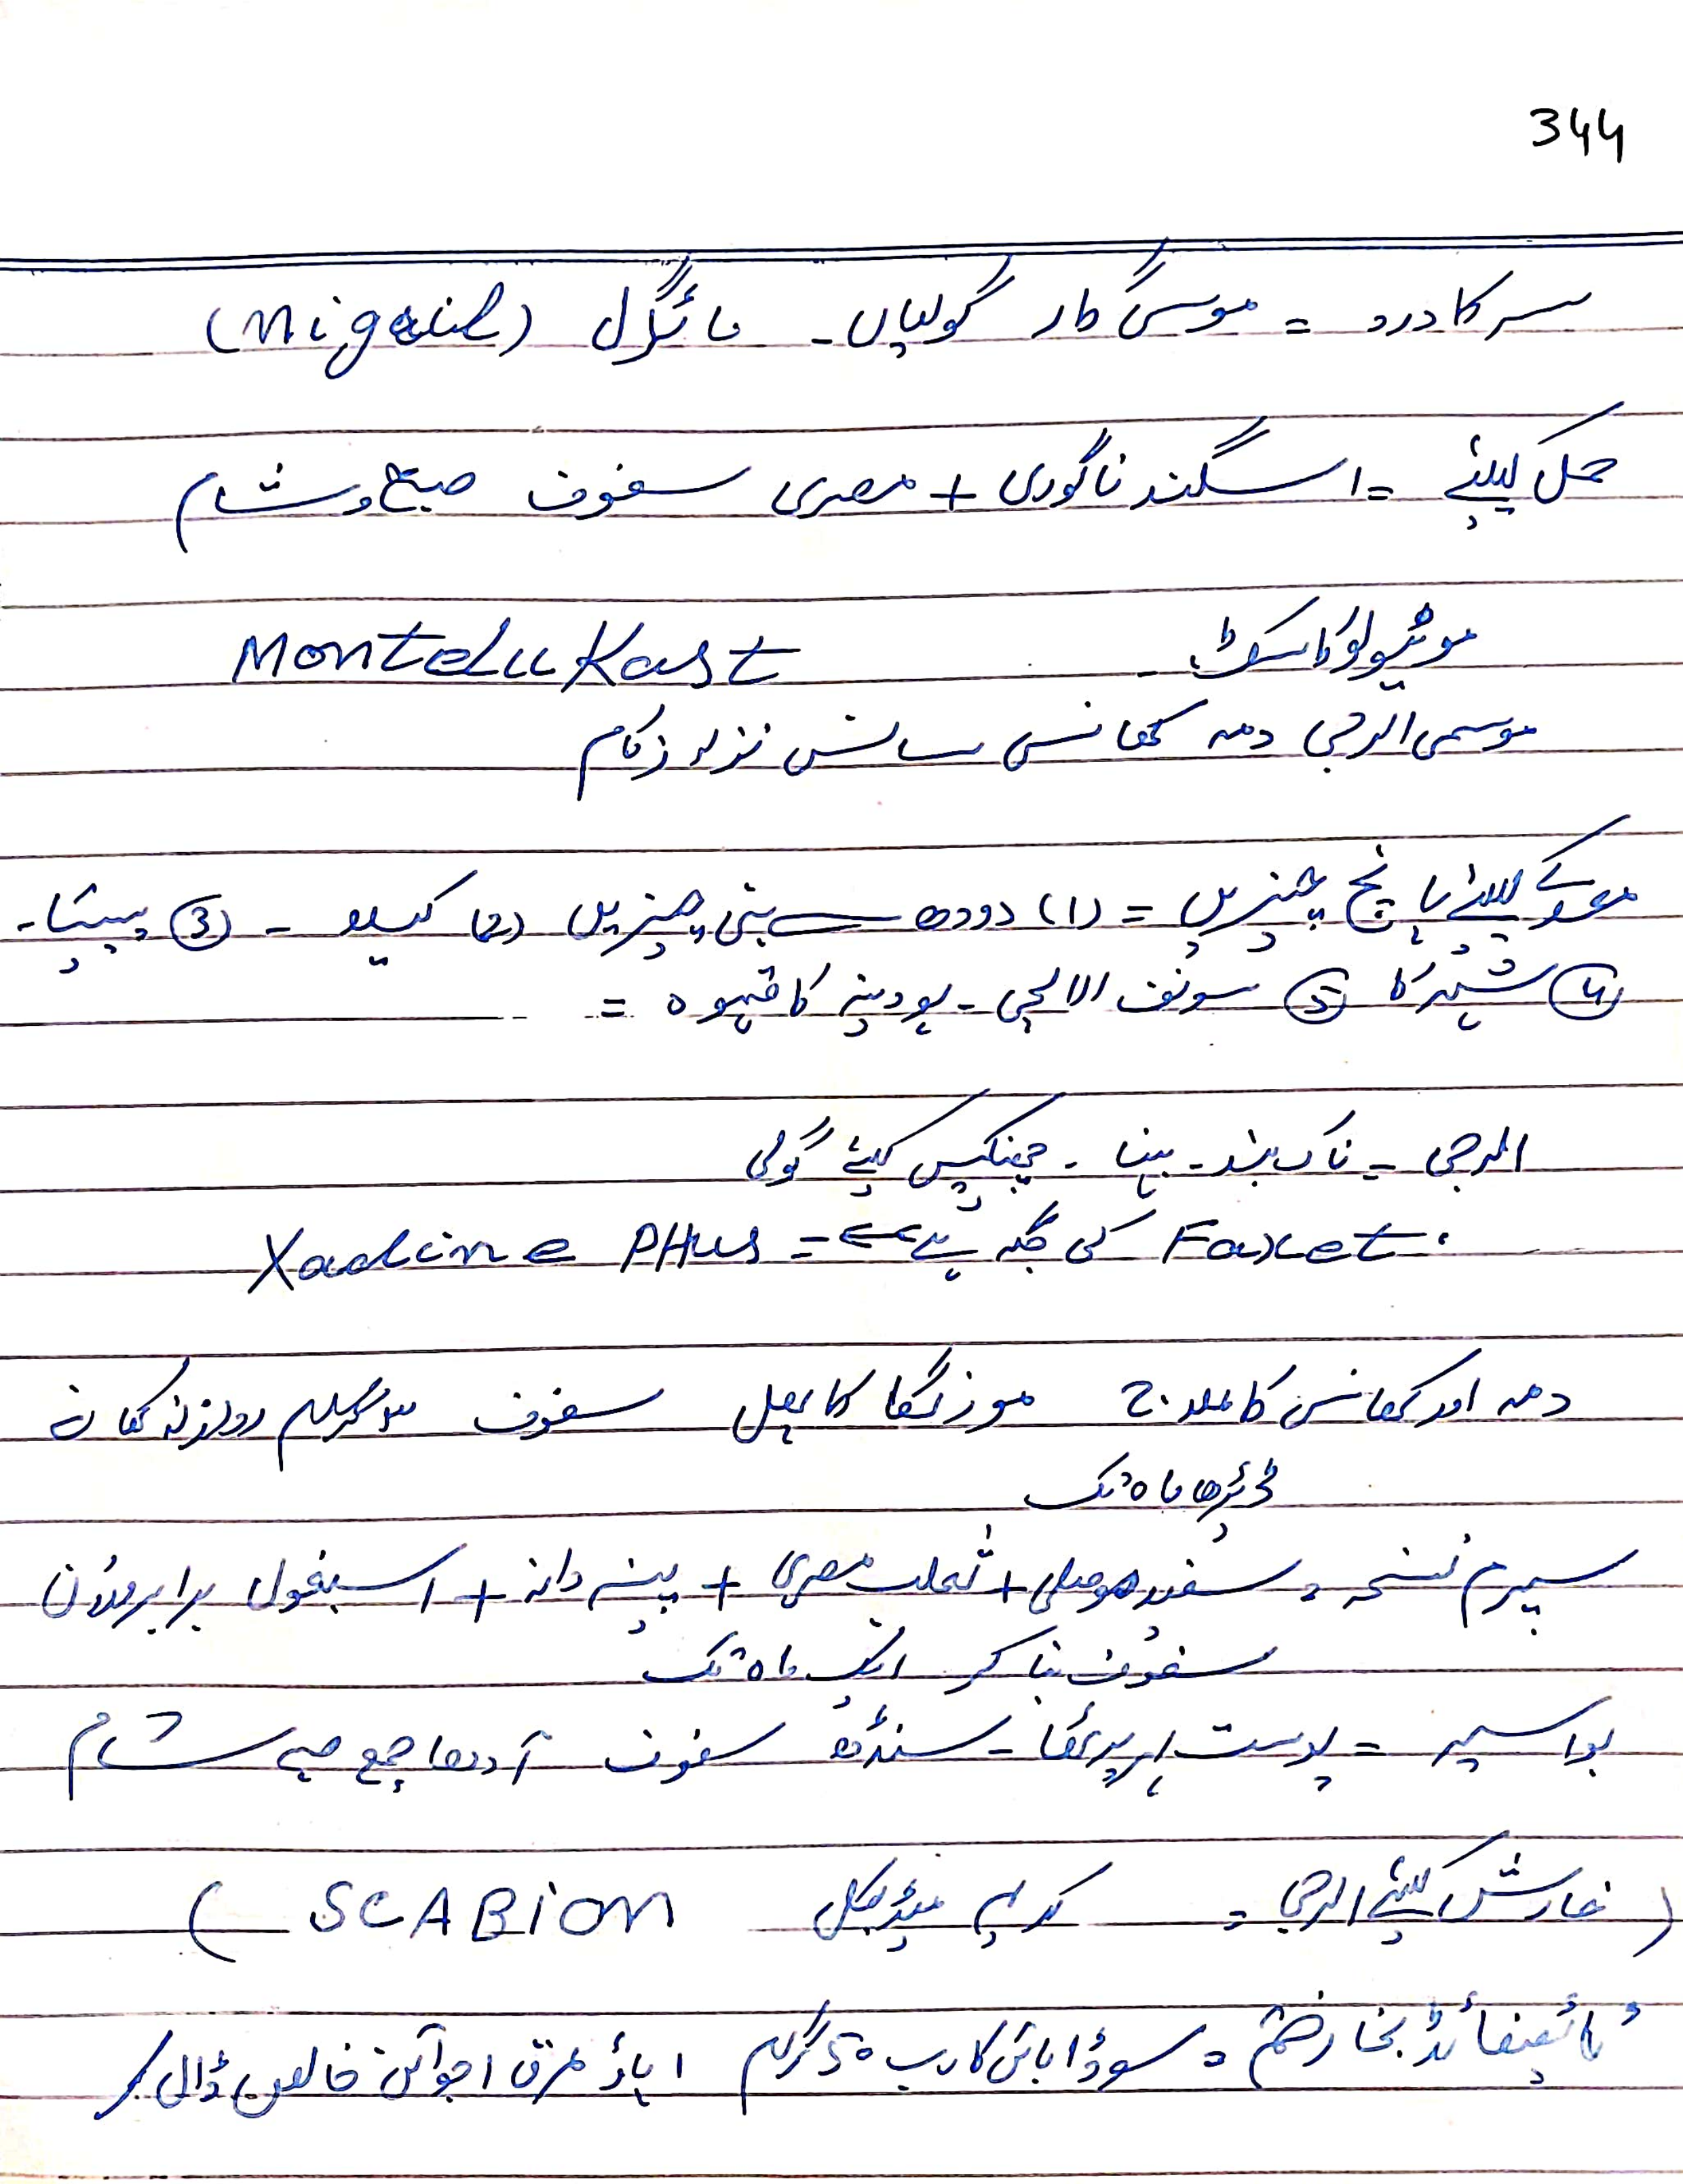 344
سر کا درد = گولیاں - مائگرل (Migail)
حمل کیلئے = اسگند ناگوری + مصری سفوف صبح و شام
مونٹیولوکاسٹ - Montelukast
موسمی الرجی دمہ کھانسی سانس نزلہ زکام
معدے کیلئے پانچ چیزیں = (1) دودھ سے بنی چیزیں (2) کیلا - (3) پپیتا -
(4) شہد کا (5) سونف الائچی - پودینہ کا قہوہ =
الرجی - ناک بند - بہنا - چھینکیں کیلئے گولی
Faxet کی جگہ پے ← = Xadine PHus
دمہ اور کھانسی کا علاج موزنگا کا پھل سفوف گرام روزانہ کھانا
ڈیڑھ ماہ تک
سپرم نسخہ = سفید موصلی + ثعلب مصری + پنبہ دانہ + اسپغول برابر وزن
سفوف بنا کر ایک ماہ تک
بواسیر = پوست سفوف آدھا چمچ صبح شام
(خارش کیلئے الرجی = کریم میڈیکل SCABION)
ٹائیفائڈ بخار ختم = سوڈا بائی کارب 50 گرام 1 پاؤ عرق اجوائن خالص ڈال کر